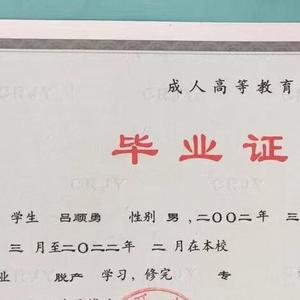 成人高等教育
毕业证
学生 吕顺勇 性别 男，二〇〇二年 三
三 月至二〇二二年 二 月在本校
业 脱产 学习，修完 专